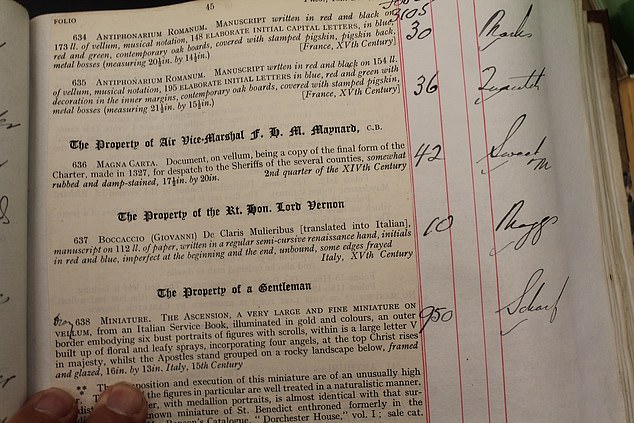 45
FOLIO
634 ANTIPHONARIUM ROMANUM. MANUSCRIPT written in red and black on
173 ll. of vellum, musical notation, 148 ELABORATE INITIAL CAPITAL LETTERS, in blue,
red and green, contemporary oak boards, covered with stamped pigskin, pigskin back,
metal bosses (measuring 20½in. by 14½in.) [France, XVth Century]
30
635 ANTIPHONARIUM ROMANUM. MANUSCRIPT written in red and black on 154 ll.
of vellum, musical notation, 195 ELABORATE INITIAL LETTERS in blue, red and green with
decoration in the inner margins, contemporary oak boards, covered with stamped pigskin,
metal bosses (measuring 21½in. by 15½in.) [France, XVth Century]
36
The Property of Air Vice-Marshal F. H. M. Maynard, C.B.
636 MAGNA CARTA. Document, on vellum, being a copy of the final form of the
Charter, made in 1327, for despatch to the Sheriffs of the several counties, somewhat
rubbed and damp-stained, 17½in. by 20in. 2nd quarter of the XIVth Century
42 Sweet
m
The Property of the Rt. Hon. Lord Vernon
637 BOCCACCIO (GIOVANNI) De Claris Mulieribus [translated into Italian],
manuscript on 112 ll. of paper, written in a regular semi-cursive renaissance hand, initials
in red and blue, imperfect at the beginning and the end, unbound, some edges frayed
Italy, XVth Century
10 Maggs
The Property of a Gentleman
638 MINIATURE. THE ASCENSION, A VERY LARGE AND FINE MINIATURE ON
VELLUM, from an Italian Service Book, illuminated in gold and colours, an outer
border embodying six bust portraits of figures with scrolls, within is a large letter V
built up of floral and leafy sprays, incorporating four angels, at the top Christ rises
in majesty, whilst the Apostles stand grouped on a rocky landscape below, framed
and glazed, 16in. by 13in. Italy, 15th Century
950
position and execution of this miniature are of an unusually high
the figures in particular are well treated in a naturalistic manner.
der, with medallion portraits, is almost identical with that sur-
nown miniature of St. Benedict enthroned formerly in the
Catalogue, "Dorchester House," vol. I; sale cat.